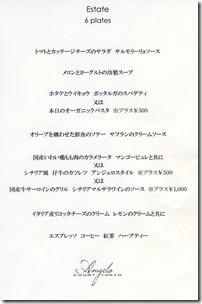 Estate
6 plates
トマトとカッテージチーズのサラダ サルモリーリョソース
メロンとヨーグルトの冷製スープ
ホタテとウイキョウ ボッタルガのスパゲティ
又は
本日のオーガニックパスタ ※プラス¥500
オリーブを纏わせた鮮魚のソテー サフランのクリームソース
国産いわい鶏もも肉のカラメラータ マンゴーピュレと共に
又は
シチリア風 仔牛のカツレツ アンジェロスタイル ※プラス¥500
又は
国産牛サーロインのグリル シチリアマルサラワインのソース ※プラス¥1,000
イタリア産リコッタチーズのクリーム レモンのクリームと共に
エスプレッソ コーヒー 紅茶 ハーブティー
Angelo
COURT TOKYO